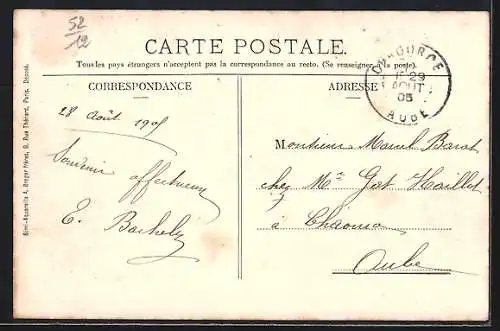 52
12
CARTE POSTALE.
Tous les pays étrangers n'acceptent pas la correspondance au recto. (Se renseigner à la poste).
CORRESPONDANCE
ADRESSE
CHAOURCE
29
AOUT
05
AUBE
28 Août 1905
Souvenir affectueux
E. Bachely
Monsieur Marcel Barat
chez Mr Gat Haillot
à Chaource
Aube
Simi-Aquarelle A. Breger Frères, 9, Rue Thénard, Paris. Déposé.